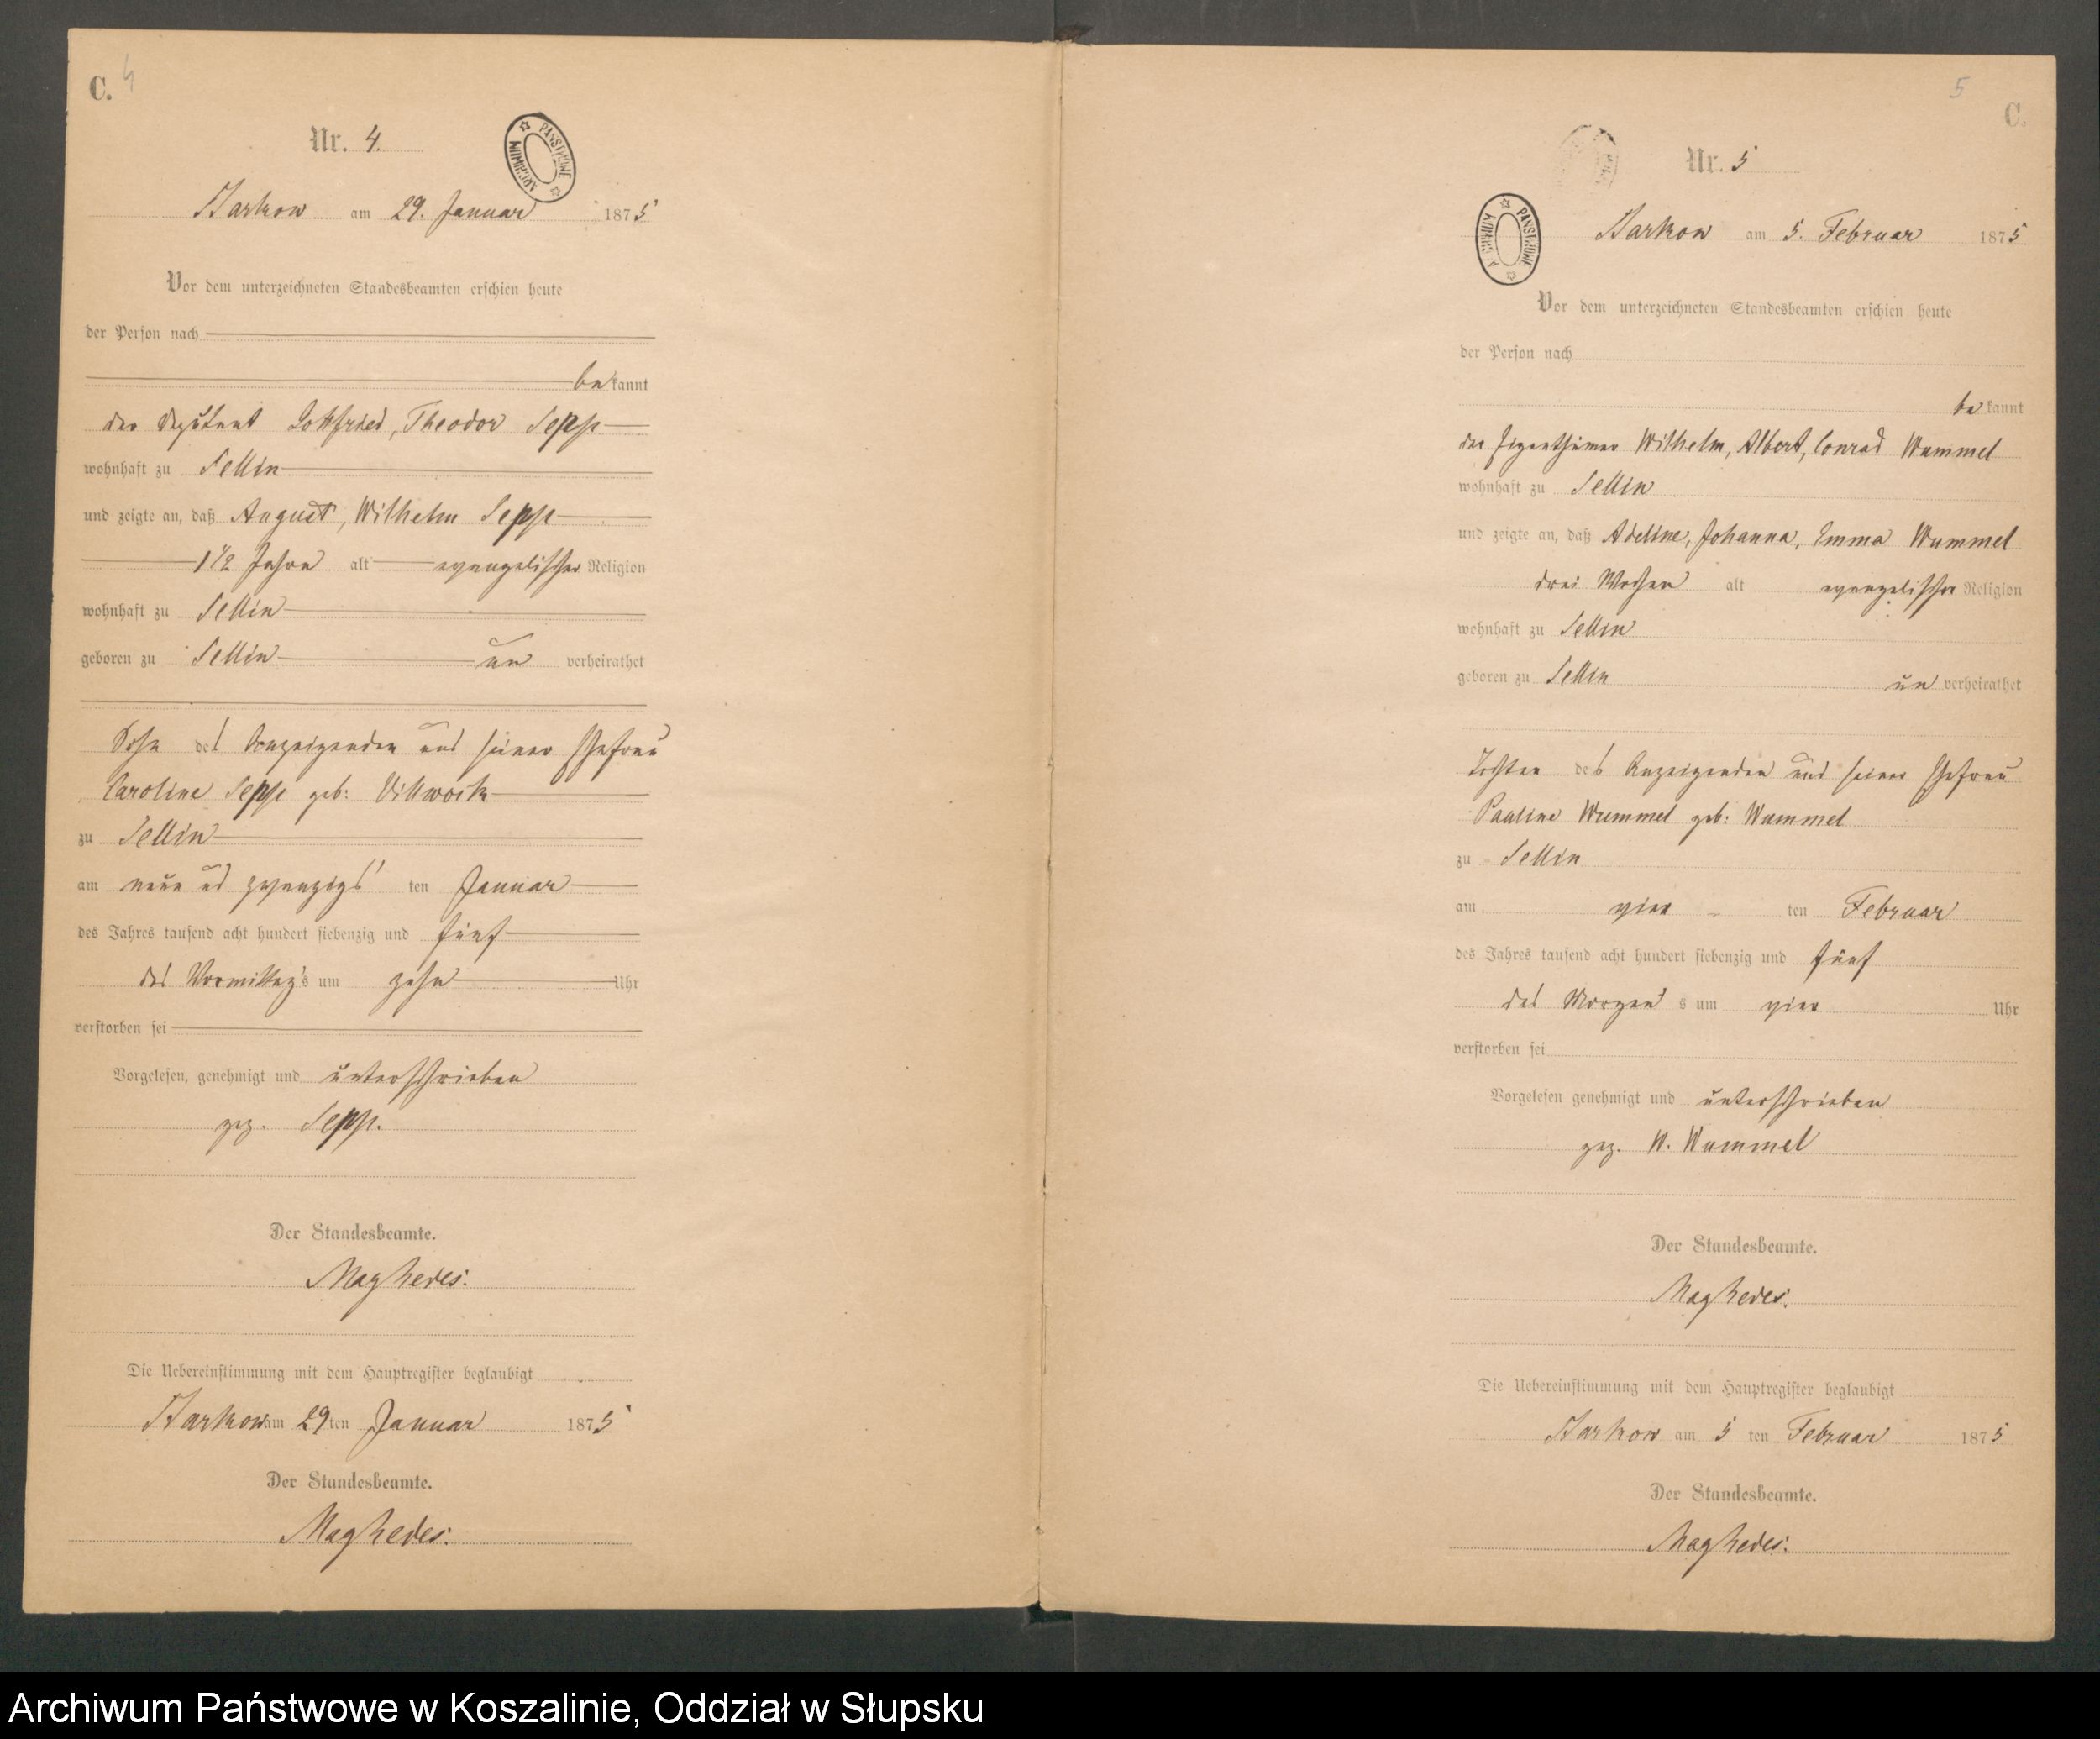 C. 4
Nr. 4.
ARCHIWUM PAŃSTWOWE
Starkow am 29. Januar 1875
Vor dem unterzeichneten Standesbeamten erschien heute
der Person nach
bekannt
der Deputant Gottfried, Theodor Sepp
wohnhaft zu Sellin
und zeigte an, daß August, Wilhelm Sepp
1 1/2 Jahre alt evangelischer Religion
wohnhaft zu Sellin
geboren zu Sellin un verheirathet
Sohn des Anzeigenden und seiner Ehefrau
Caroline Sepp geb: Villwock
zu Sellin
am neun ud zwanzigs ten Januar
des Jahres tausend acht hundert siebenzig und fünf
des Vormittags um zehn Uhr
verstorben sei
Vorgelesen, genehmigt und unterschrieben
gez. Sepp.
Der Standesbeamte.
Die Uebereinstimmung mit dem Hauptregister beglaubigt
Starkow am 29ten Januar 1875
Der Standesbeamte.
5
C.
Nr. 5
ARCHIWUM PAŃSTWOWE
Starkow am 5. Februar 1875
Vor dem unterzeichneten Standesbeamten erschien heute
der Person nach
bekannt
der Eigenthümer Wilhelm, Albert, Conrad Wummel
wohnhaft zu Sellin
und zeigte an, daß Adeline, Johanna, Emma Wummel
drei Wochen alt evangelischer Religion
wohnhaft zu Sellin
geboren zu Sellin un verheirathet
Tochter des Anzeigenden und seiner Ehefrau
Pauline Wummel geb: Wummel
zu Sellin
am vier ten Februar
des Jahres tausend acht hundert siebenzig und fünf
des Morgens um vier Uhr
verstorben sei
Vorgelesen genehmigt und unterschrieben
gez. W. Wummel
Der Standesbeamte.
Die Uebereinstimmung mit dem Hauptregister beglaubigt
Starkow am 5 ten Februar 1875
Der Standesbeamte.
Archiwum Państwowe w Koszalinie, Oddział w Słupsku